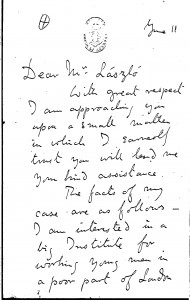 June 11
Dear Mr László
With great respect
I am approaching you
upon a small matter
in which I earnestly
trust you will lend me
your kind assistance.
The facts of my
case are as follows –
I am interested in a
big Institute for
working young men in
a poor part of London